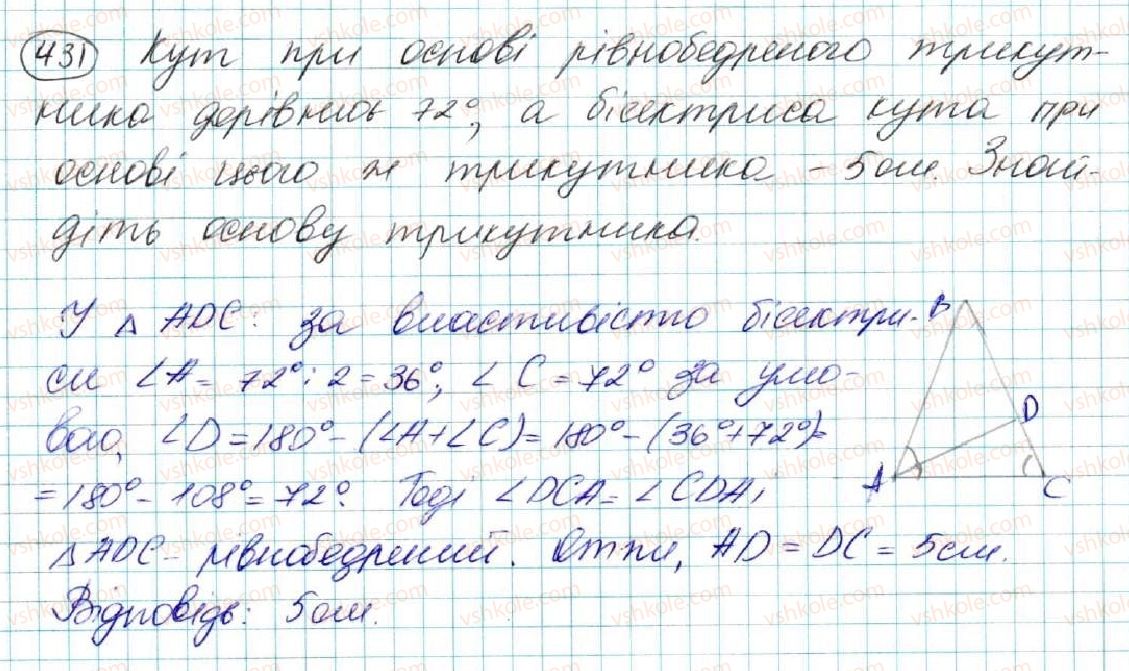 431 Кут при основі рівнобедреного трикут-
ника дорівнює 72°, а бісектриса кута при
основі цього ж трикутника - 5 см. Знай-
діть основу трикутника.
У △ ADC: за властивістю бісектри-
си ∠A = 72° : 2 = 36°, ∠C = 72° за умо-
вою, ∠D = 180° - (∠A + ∠C) = 180° - (36° + 72°) =
= 180° - 108° = 72°. Тоді ∠DCA = ∠CDA,
△ ADC - рівнобедрений. Отже, AD = DC = 5 см.
Відповідь: 5 см.
B
D
A
C
vshkole.com